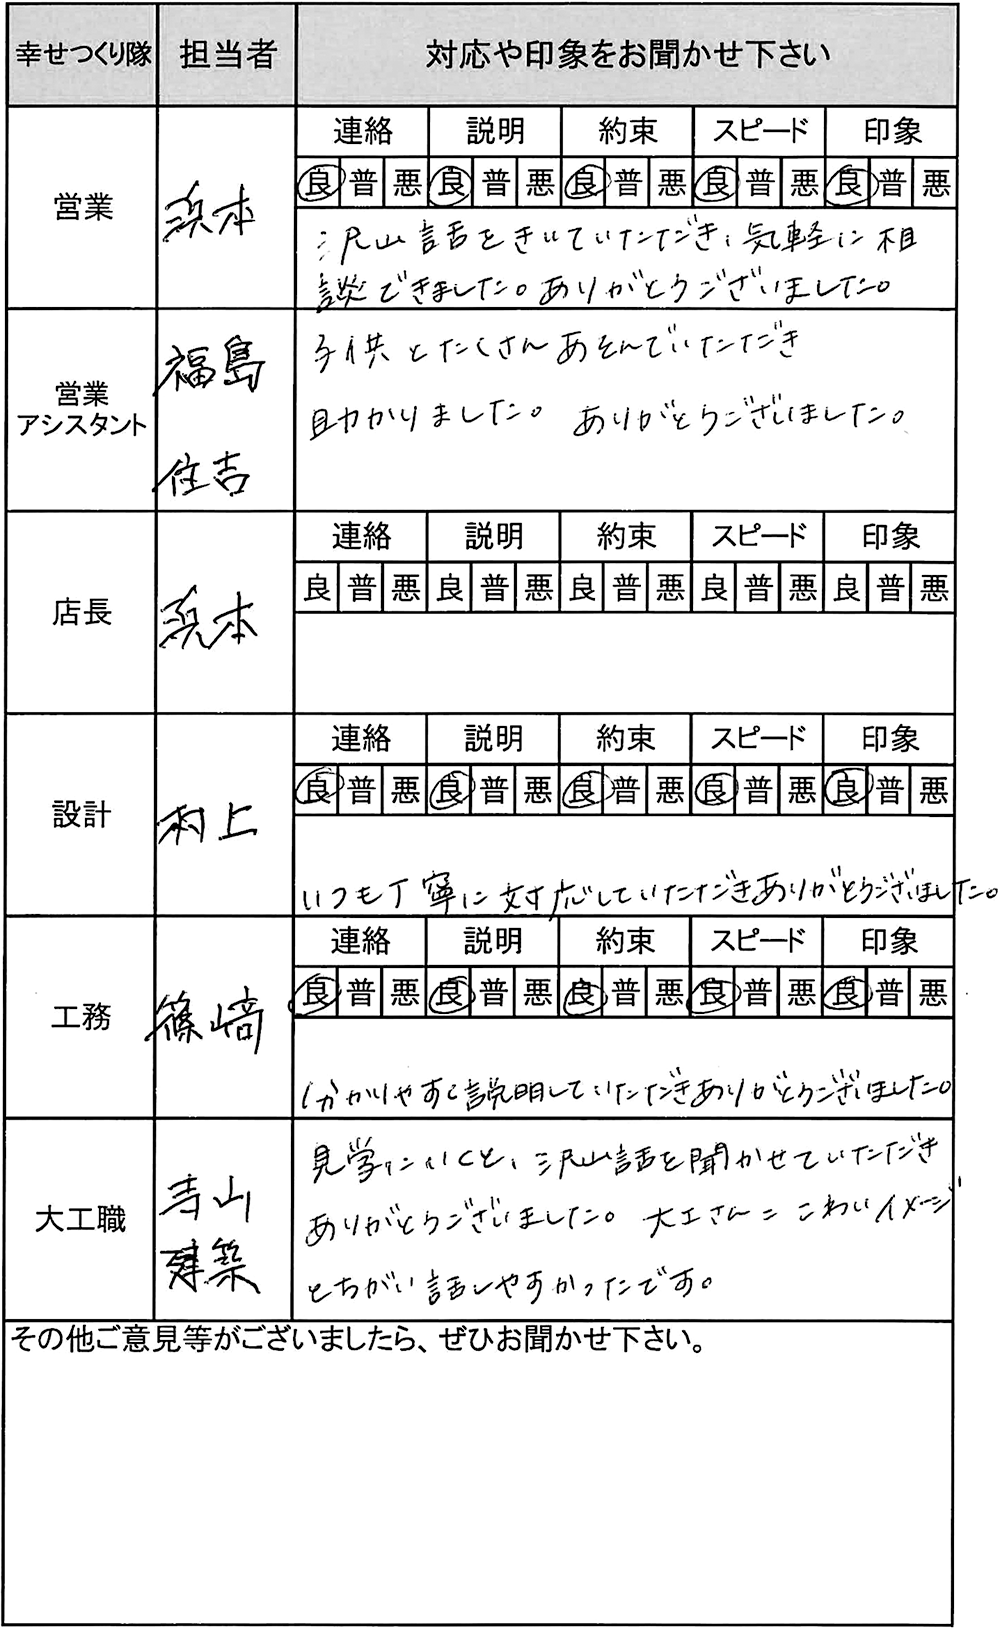 幸せつくり隊 担当者 対応や印象をお聞かせ下さい
営業 浜本
連絡 説明 約束 スピード 印象
良 普 悪 良 普 悪 良 普 悪 良 普 悪 良 普 悪
沢山話をきいていただき、気軽に相
談できました。ありがとうございました。
営業
アシスタント
福島
住吉
子供とたくさんあそんでいただき
助かりました。 ありがとうございました。
店長 浜本
連絡 説明 約束 スピード 印象
良 普 悪 良 普 悪 良 普 悪 良 普 悪 良 普 悪
設計 村上
連絡 説明 約束 スピード 印象
良 普 悪 良 普 悪 良 普 悪 良 普 悪 良 普 悪
いつも丁寧に対応していただきありがとうございました。
工務 篠崎
連絡 説明 約束 スピード 印象
良 普 悪 良 普 悪 良 普 悪 良 普 悪 良 普 悪
分かりやすく説明していただきありがとうございました。
大工職
寺山
建築
見学にいくと、沢山話を聞かせていただき
ありがとうございました。 大工さん=こわいイメージ
とちがい話しやすかったです。
その他ご意見等がございましたら、ぜひお聞かせ下さい。